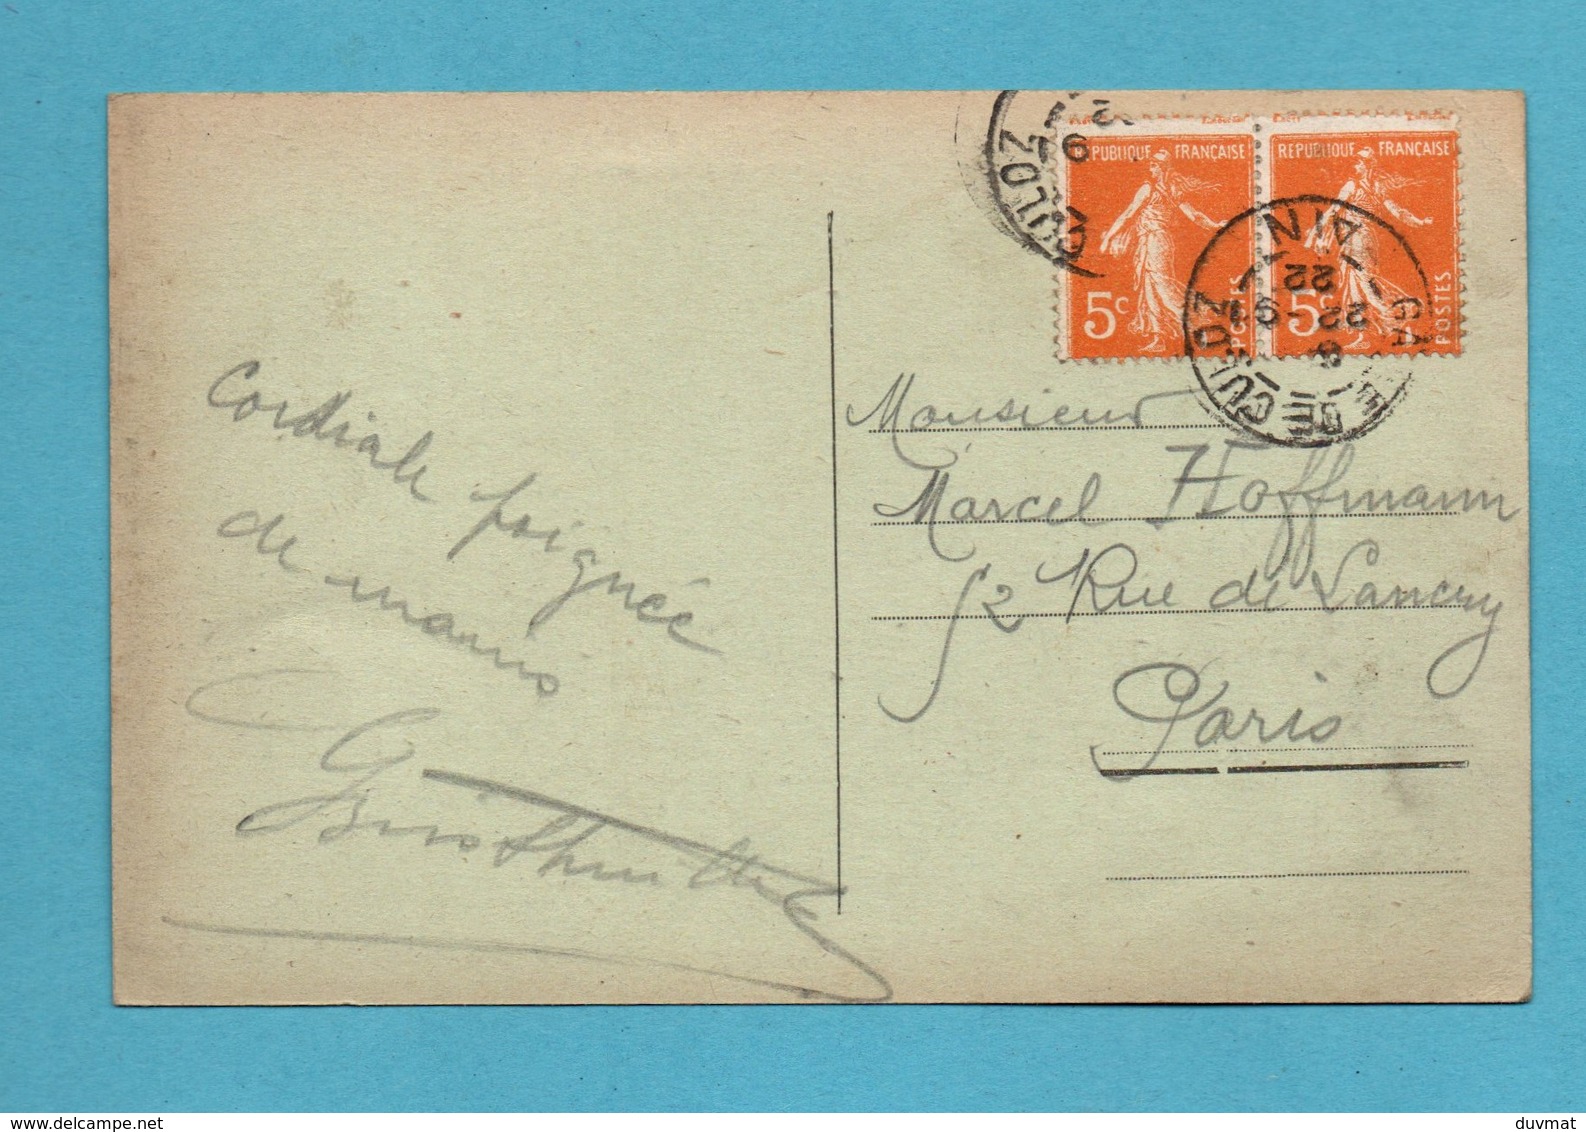 Cordiale poignée
de mains
REPUBLIQUE FRANÇAISE
5c
POSTES
REPUBLIQUE FRANÇAISE
5c
POSTES
CULOZ
GARE DE CULOZ
AIN
22
Monsieur
Marcel Hoffmann
52 Rue de Lancry
Paris
www.delcampe.net
duvmat